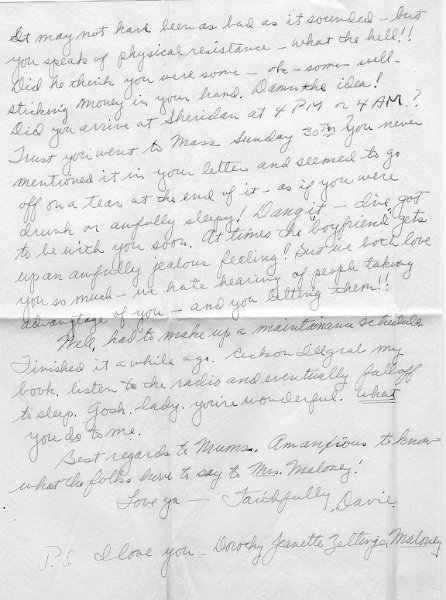 It may not have been as bad as it sounded - but
you speak of physical resistance - what the hell!!
Did he think you were some - oh - some
sticking money in your hand. Damn the idea!
Did you arrive at Sheridan at 4 PM or 4 AM.?
Trust you went to Mass Sunday 30th? You never
mentioned it in your letter and seemed to go
off on a tear at the end of it - as if you were
drunk or awfully sleepy! Dang it - I've got
to be with you soon. At times the "boyfriend" gets
up an awfully jealous feeling! But we both love
you so much - we hate hearing of people taking
advantage of you - and you letting them!!
Well, had to make up a maintainance schedule.
Finished it a while ago. Reckon I'll grab my
book, listen to the radio and eventually fall off
to sleep. Gosh, lady. you're wonderful. what
you do to me.
Best regards to Mums. Am anxious to know
what the folks have to say to Mrs. Maloney!
Love ya - Faithfully Davie
P.S. I love you - Dorothy Jeanette Zeltinger Maloney